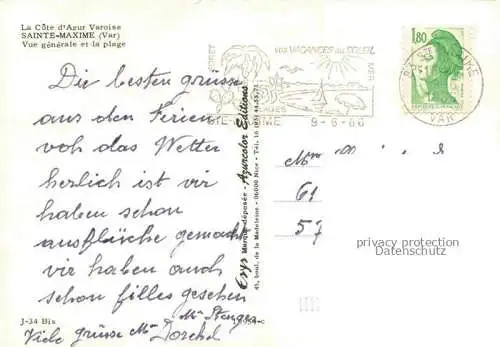 La Côte d'Azur Varoise
SAINTE-MAXIME (Var)
Vue générale et la plage
Die besten grüsse
aus den Ferien
voh das Wetter
herlich ist vir
haben schon
ausflüche gemacht
vir haben auch
schon filles gesehen
Mme Stenger
Viele grüsse Mme Dorchel
J-34 Bis
Erys Marque déposée - Azurcolor Editions
41, boul. de la Madeleine - 06000 Nice - Tél. 16 (93) 44.55.71
VOS VACANCES au SOLEIL
FORET
MER
STE-MAXIME
9-6-86
1,80
VAR
Mme
61
57
privacy protection
Datenschutz